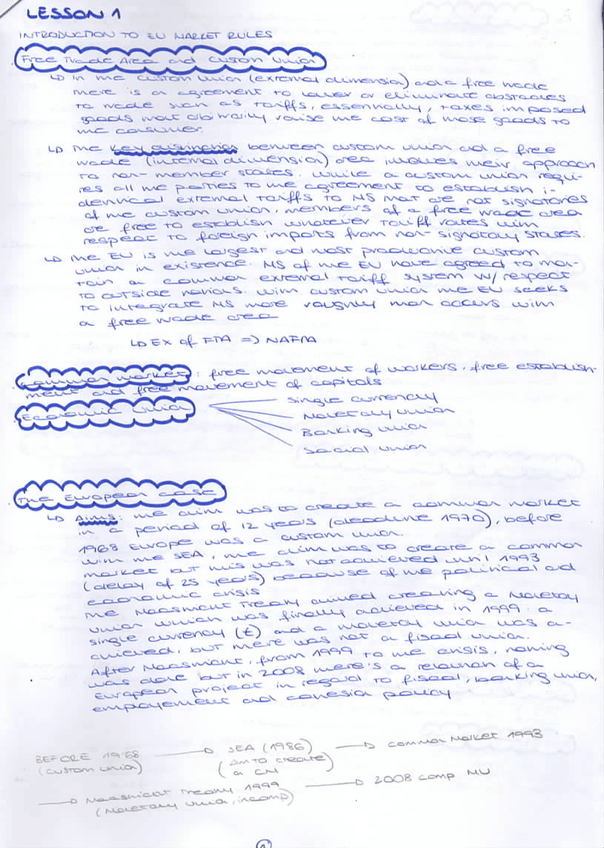 LESSON 1
INTRODUCTION TO EU MARKET RULES
Free Trade Area and Custom Union
↳ in the custom union (external dimension) and a free trade
there is an agreement to lower or eliminate obstacles
to trade such as tariffs, essentially, taxes imposed
goods that arbitrarily raise the cost of those goods to
the consumer.
↳ The key distinction between custom union and a free
trade (internal dimension) area involves their approach
to non-member states. While a custom union requi-
res all the parties to the agreement to establish i-
dentical external tariffs to MS that are not signatories
of the custom union, members of a free trade area
are free to establish whatever tariff rates with
respect to foreign imports from non signatory states.
↳ The EU is the largest and most productive custom
union in existence. MS of the EU have agreed to main-
tain a common external tariff system w/ respect
to outside nations. With custom union the EU seeks
to integrate MS more roughly than occurs with
a free trade area
↳ Ex of FTA => NAFTA
Common market: free movement of workers, free establish-
ment and free movement of capitals
Economic Union
Single currency
Monetary union
Banking union
Social union
The European case
↳ Aims: the aim was to create a common market
in a period of 12 years (deadline 1970), before
1968 Europe was a custom union.
With the SEA, the aim was to create a common
market but this was not achieved until 1993
(delay of 25 years) because of the political and
economic crisis
The Maastricht Treaty aimed creating a Monetary
Union which was finally achieved in 1999: a
single currency (€) and a monetary union was a-
chieved, but there was not a fiscal union.
After Maastricht, from 1999 to the crisis, nothing
was done but in 2008 there's a relaunch of a
European project in regard to fiscal, banking union,
employement and cohesion policy
BEFORE 1968 → SEA (1986) → Common Market 1993
(custom union) (aim to create
a CM)
→ Maastricht Treaty 1999 → 2008 comp MU
(Monetary Union, incomp)
1